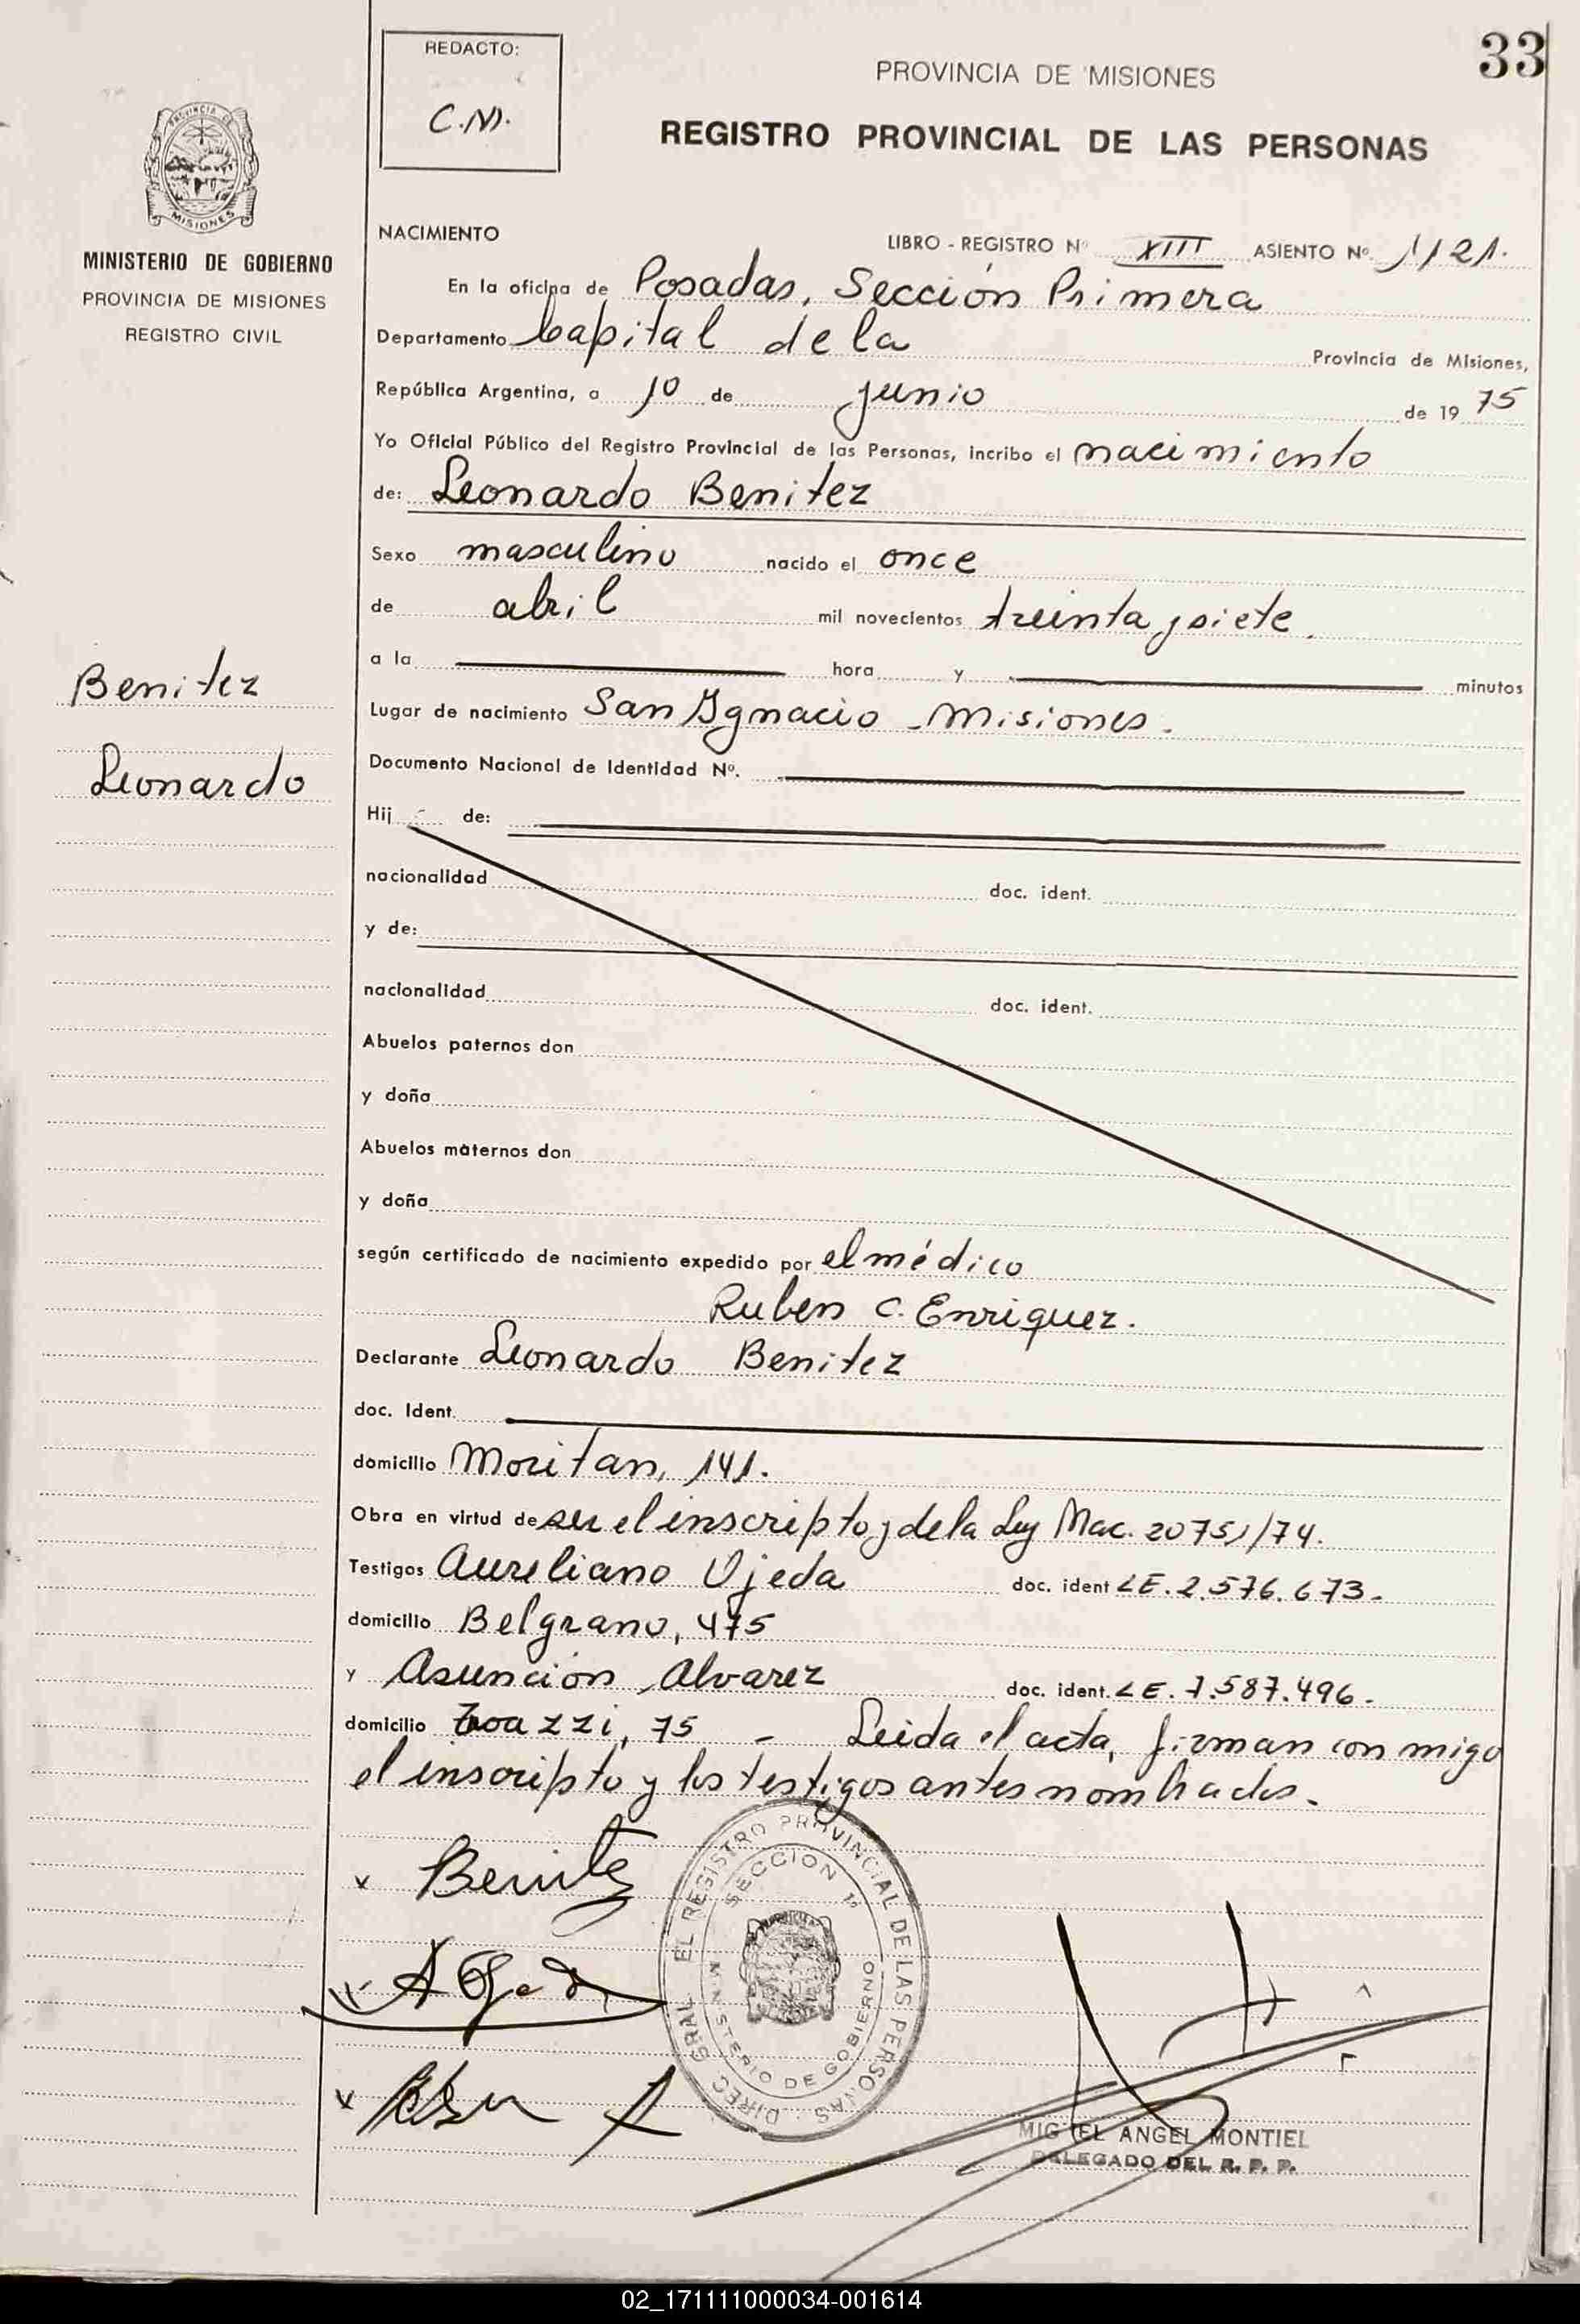 33
REDACTO:
C.N.
PROVINCIA DE MISIONES
REGISTRO PROVINCIAL DE LAS PERSONAS
MISIONES
MINISTERIO DE GOBIERNO
PROVINCIA DE MISIONES
REGISTRO CIVIL
NACIMIENTO LIBRO - REGISTRO Nº XIII ASIENTO Nº 1121.
En la oficina de Posadas, Sección Primera
Departamento Capital de la Provincia de Misiones,
República Argentina, a 10 de junio de 19 75
Yo Oficial Público del Registro Provincial de las Personas, incribo el nacimiento
de: Leonardo Benitez
Sexo masculino nacido el once
de abril mil novecientos treinta y siete.
a la hora y minutos
Benitez
Lugar de nacimiento San Ignacio - Misiones.
Leonardo
Documento Nacional de Identidad Nº.
Hij de:
nacionalidad doc. ident.
y de:
nacionalidad doc. ident.
Abuelos paternos don
y doña
Abuelos maternos don
y doña
según certificado de nacimiento expedido por el médico
Ruben C. Enriquez.
Declarante Leonardo Benitez
doc. Ident.
domicilio Moritan, 141.
Obra en virtud de ser el inscripto y de la Ley Nac. 20751/74.
Testigos Aureliano Ojeda doc. ident LE. 2.576.673.
domicilio Belgrano, 475
y Asunción Alvarez doc. ident. LE. 7.587.496.
domicilio 75 - Leida el acta, firman con migo
el inscripto y los testigos antes nombrados.
Benitez
DIREC. GRAL. EL REGISTRO PROVINCIAL DE LAS PERSONAS
SECCION 1ª
MINISTERIO DE GOBIERNO
MIGUEL ANGEL MONTIEL
DELEGADO DEL R. P. P.
02_171111000034-001614